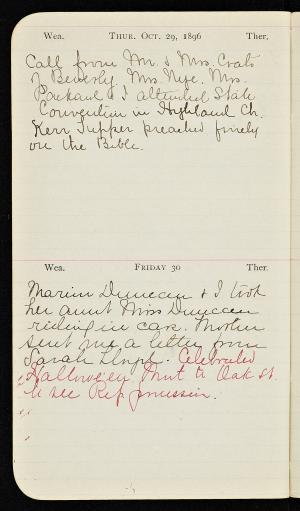 Wea. THUR. OCT. 29, 1896 Ther.
Call from Mr. & Mrs. Crats
of Beverly. Mrs. Nye. Mrs.
& I attended State
Convention in Highland Ch.
Kerr Tupper preached finely
on the Bible.
Wea. FRIDAY 30 Ther.
Marion Duncan & I took
her aunt Miss Duncan
riding in car. Mother
sent me a letter from
Sarah Lloyd. Celebrated
Halloween. Went to Oak St.
to see Rep. procession.